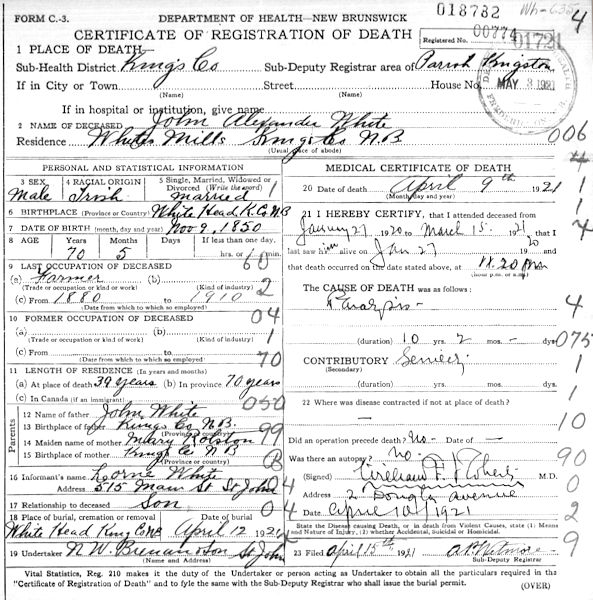 FORM C.-3. DEPARTMENT OF HEALTH—NEW BRUNSWICK 018732 Wh-635 4
CERTIFICATE OF REGISTRATION OF DEATH Registered No. 00774 01721
1 PLACE OF DEATH—
Sub-Health District Kings Co Sub-Deputy Registrar area of Parish Kingston
If in City or Town (Name) Street (Name) House No. MAY 3 1921
If in hospital or institution, give name
2 NAME OF DECEASED John Alexander White
Residence Whites Mills Kings Co N.B. 006
(Usual place of abode)
PERSONAL AND STATISTICAL INFORMATION
3 SEX Male
4 RACIAL ORIGIN Irish
5 Single, Married, Widowed or Divorced (Write the word) married 1
6 BIRTHPLACE (Province or Country) White Head K. Co NB
7 DATE OF BIRTH (month, day and year) Nov 9, 1850
8 AGE Years 70 Months 5 Days If less than one day, hrs. or min. 60
9 LAST OCCUPATION OF DECEASED
(a) Farmer (b) 2
(Trade or occupation or kind or work) (Kind of industry)
(c) From 1880 to 1910
(Dates from which to which so employed)
10 FORMER OCCUPATION OF DECEASED 04
(a) (b) 1
(Trade or occupation or kind of work) (Kind of industry)
(c) From to 70
(Date from which to which employed)
11 LENGTH OF RESIDENCE (In years and months)
(a) At place of death 39 years (b) In province 70 years
(c) In Canada (if an immigrant) 050
Parents
12 Name of father John White
13 Birthplace of father Kings Co N.B. 99
(Province or country)
14 Maiden name of mother Mary Rolston
15 Birthplace of mother Kings Co NB
(Province or country)
16 Informant's name Lorne White
Address 515 Main St St John 04
17 Relationship to deceased Son
18 Place of burial, cremation or removal White Head King Co NB Date of burial April 12 1921
19 Undertaker N. W. Brenan & Son St John
(Name and Address)
MEDICAL CERTIFICATE OF DEATH
20 DATE OF DEATH April 9th 1921
(Month, day and year)
21 I HEREBY CERTIFY, that I attended deceased from
January 27 1920 to March 15 1921, that I
last saw him alive on Jan 27 1920
and that death occurred on the date stated above, at 11.20 m
The CAUSE OF DEATH was as follows:
Paralysis 4
(duration) 10 yrs. 2 mos. - dys 075
CONTRIBUTORY 1
(Secondary)
(duration) yrs. mos. dys.
22 Where was disease contracted if not at place of death? 1
— 10
Did an operation precede death? No Date of —
Was there an autopsy? no. 90
(Signed) M.D. 0
Address 2 Douglas Avenue
Date April 10/1921 2
State the Disease causing Death, or in Death from Violent Causes, state (1) Means and Nature of Injury, (2) whether Accidental, Suicidal or Homicidal.
23 Filed April 15th 1921 9
Sub-Deputy Registrar
Vital Statistics, Reg. 210 makes it the duty of the Undertaker or person acting as Undertaker to obtain all the particulars required in the
"Certificate of Registration of Death" and to fyle the same with the Sub-Deputy Registrar who shall issue the burial permit. (OVER)